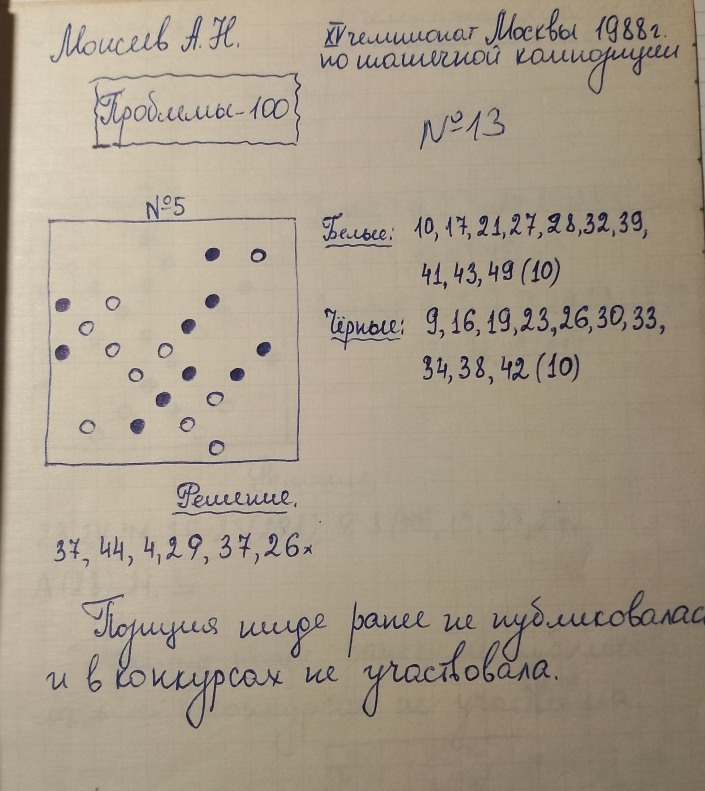 Моисеев А.Н.
XV чемпионат Москвы 1988г.
по шашечной композиции
Проблемы-100
№13
№5
Белые: 10, 17, 21, 27, 28, 32, 39,
41, 43, 49 (10)
Чёрные: 9, 16, 19, 23, 26, 30, 33,
34, 38, 42 (10)
Решение.
37, 44, 4, 29, 37, 26x
Позиция нигде ранее не публиковалас
и в конкурсах не участвовала.